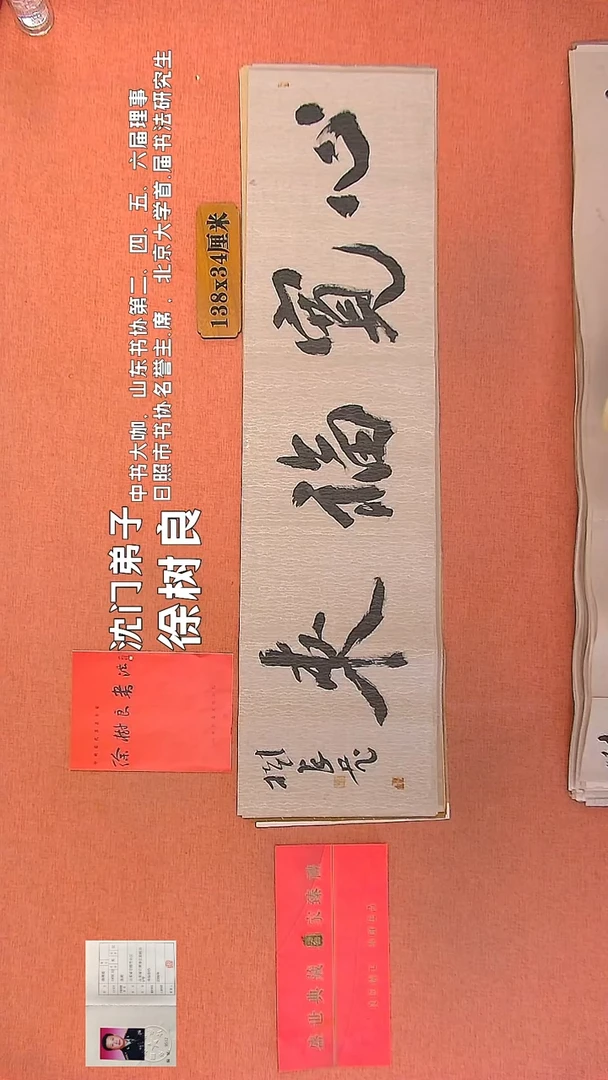 沈门弟子
徐树良
中书大咖、山东书协第二、四、五、六届理事
日照市书协名誉主席、北京大学首届书法研究生
138x34厘米
心寬福来
樹良书
徐樹良书法
盛世典藏